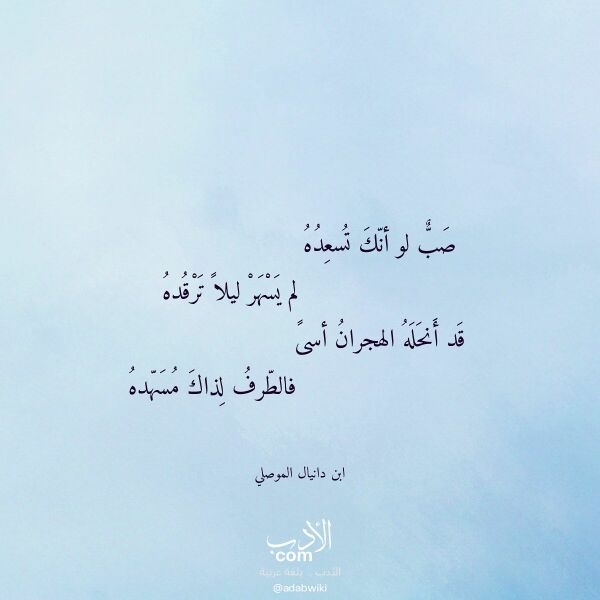 صَبٌّ لو أنّكَ تُسعِدُهُ
لم يَسْهَرْ ليلاً تَرْقُدهُ
قَد أَنحَلَهُ الهجرانُ أسىً
فالطّرفُ لِذاكَ مُسَهّدهُ
ابن دانيال الموصلي
الأدب
com
الأدب .. بلغة عربية
@adabwiki